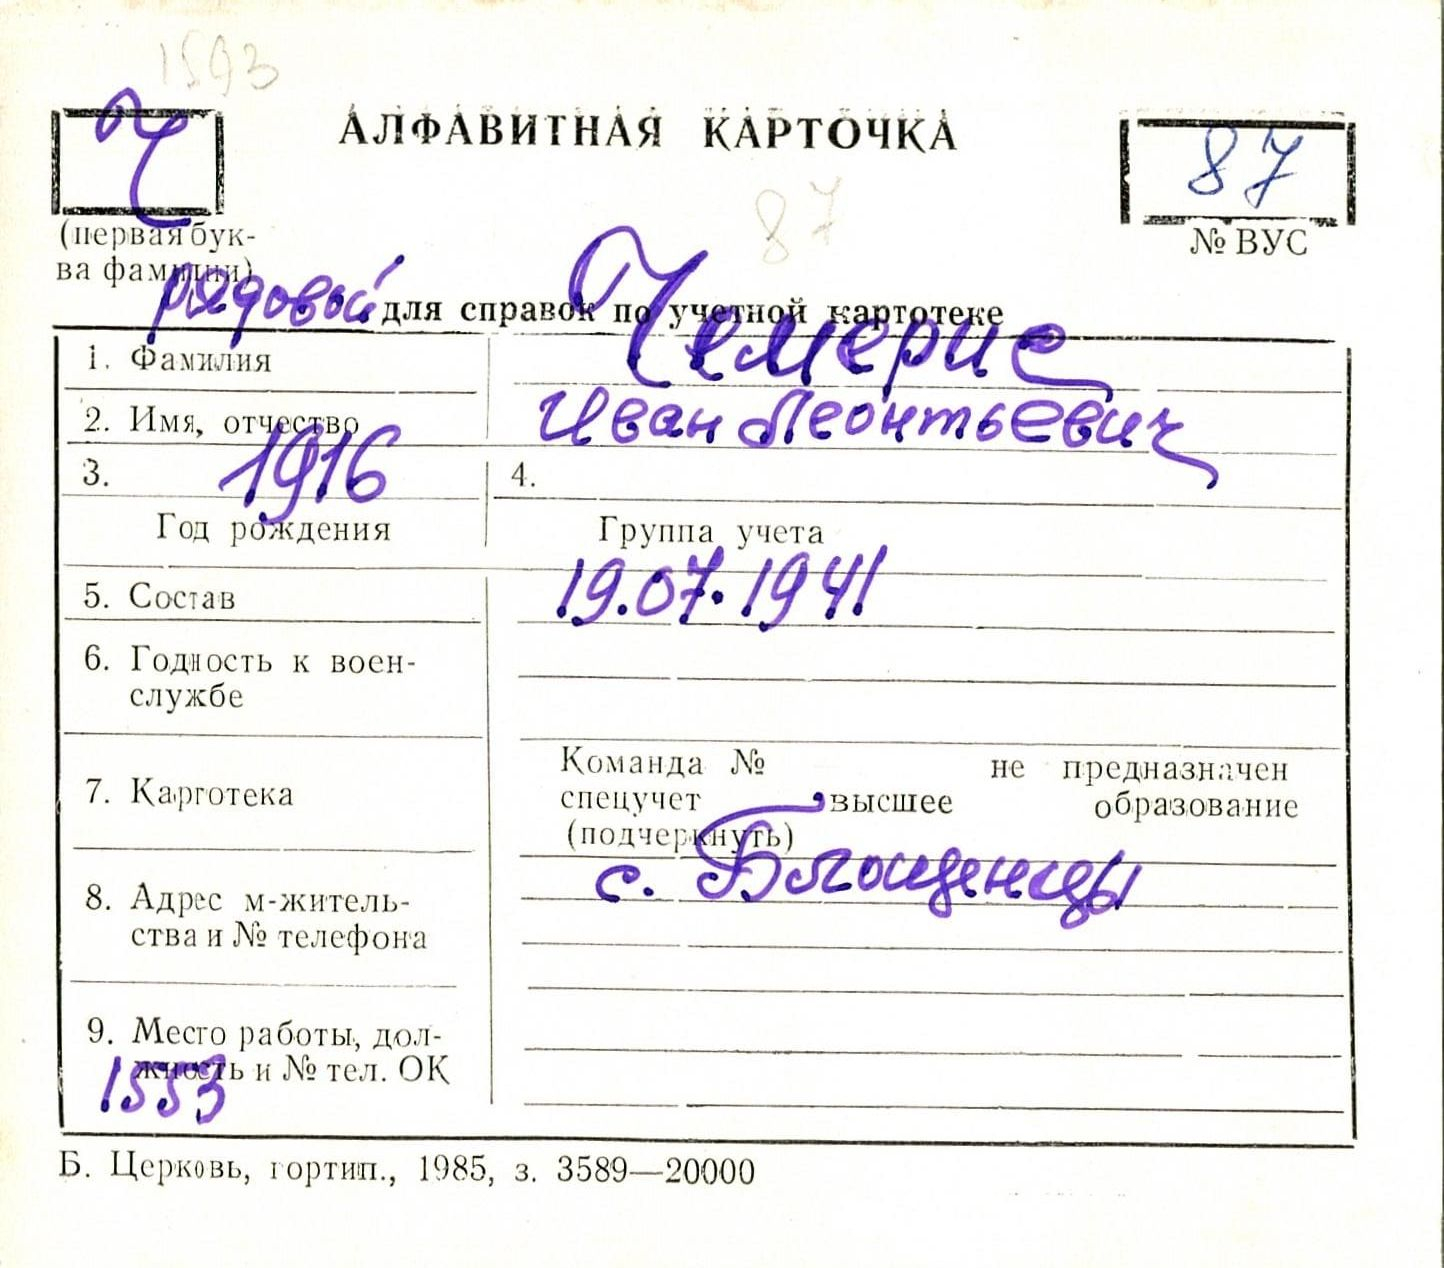 1593
Ч
АЛФАВИТНАЯ КАРТОЧКА
87
87
(первая бук-
ва фамилии)
№ ВУС
рядовой
для справок по учетной картотеке
1. Фамилия
Чемерис
2. Имя, отчество
Иван Леонтьевич
3. 1916
4.
Год рождения
Группа учета
5. Состав
19.07.1941
6. Годность к воен-
службе
7. Картотека
Команда № не предназначен
спецучет высшее образование
(подчеркнуть)
8. Адрес м-житель-
ства и № телефона
с. Блощенцы
9. Место работы, дол-
жность и № тел. ОК
1553
Б. Церковь, гортип., 1985, з. 3589—20000